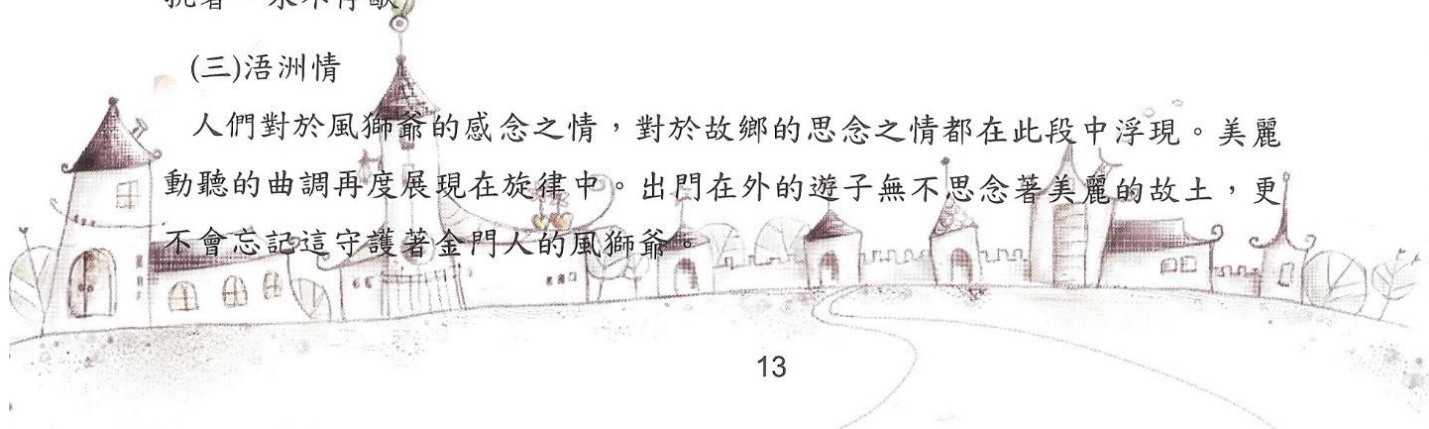 (三)浯洲情
人們對於風獅爺的感念之情，對於故鄉的思念之情都在此段中浮現。美麗
動聽的曲調再度展現在旋律中。出門在外的遊子無不思念著美麗的故土，更
不會忘記這守護著金門人的風獅爺。
13